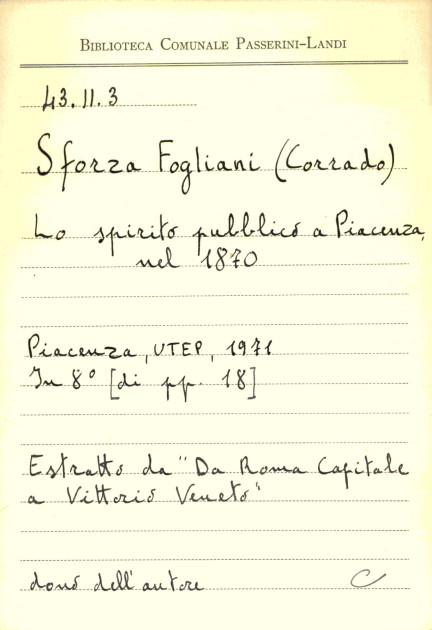 BIBLIOTECA COMUNALE PASSERINI-LANDI
43.II.3
Sforza Fogliani (Corrado)
Lo spirito pubblico a Piacenza,
nel 1870
Piacenza, UTEP, 1971
In 8° [di pp. 18]
Estratto da "Da Roma Capitale
a Vittorio Veneto"
dono dell'autore C